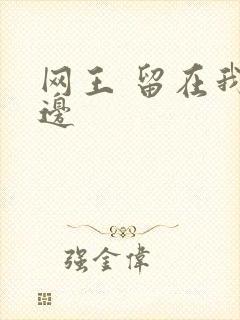 网王 留在我
邊
强金偉